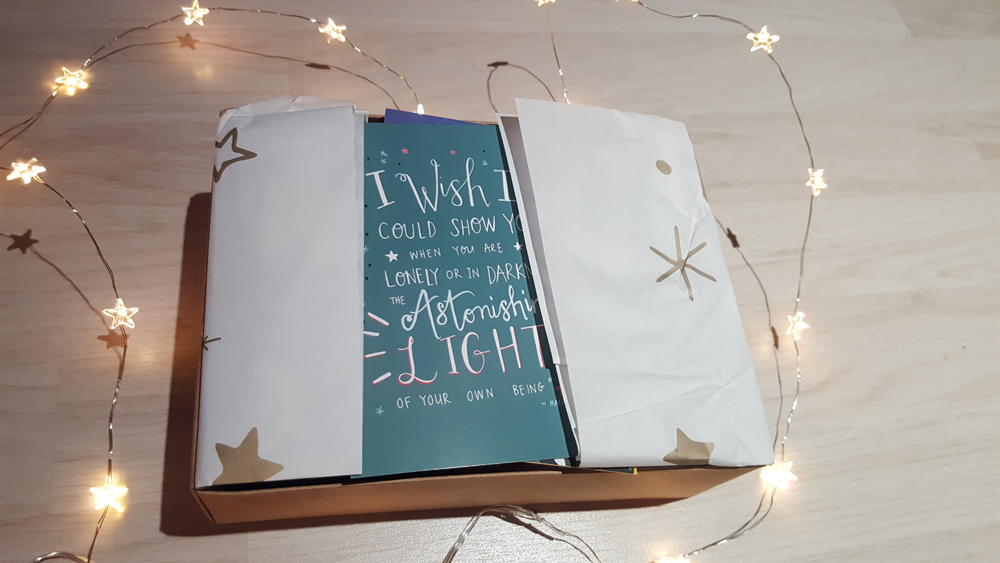 I Wish I
COULD SHOW YO
WHEN YOU ARE
LONELY OR IN DARKN
THE
Astonishin
LIGHT
OF YOUR OWN BEING
~ HA